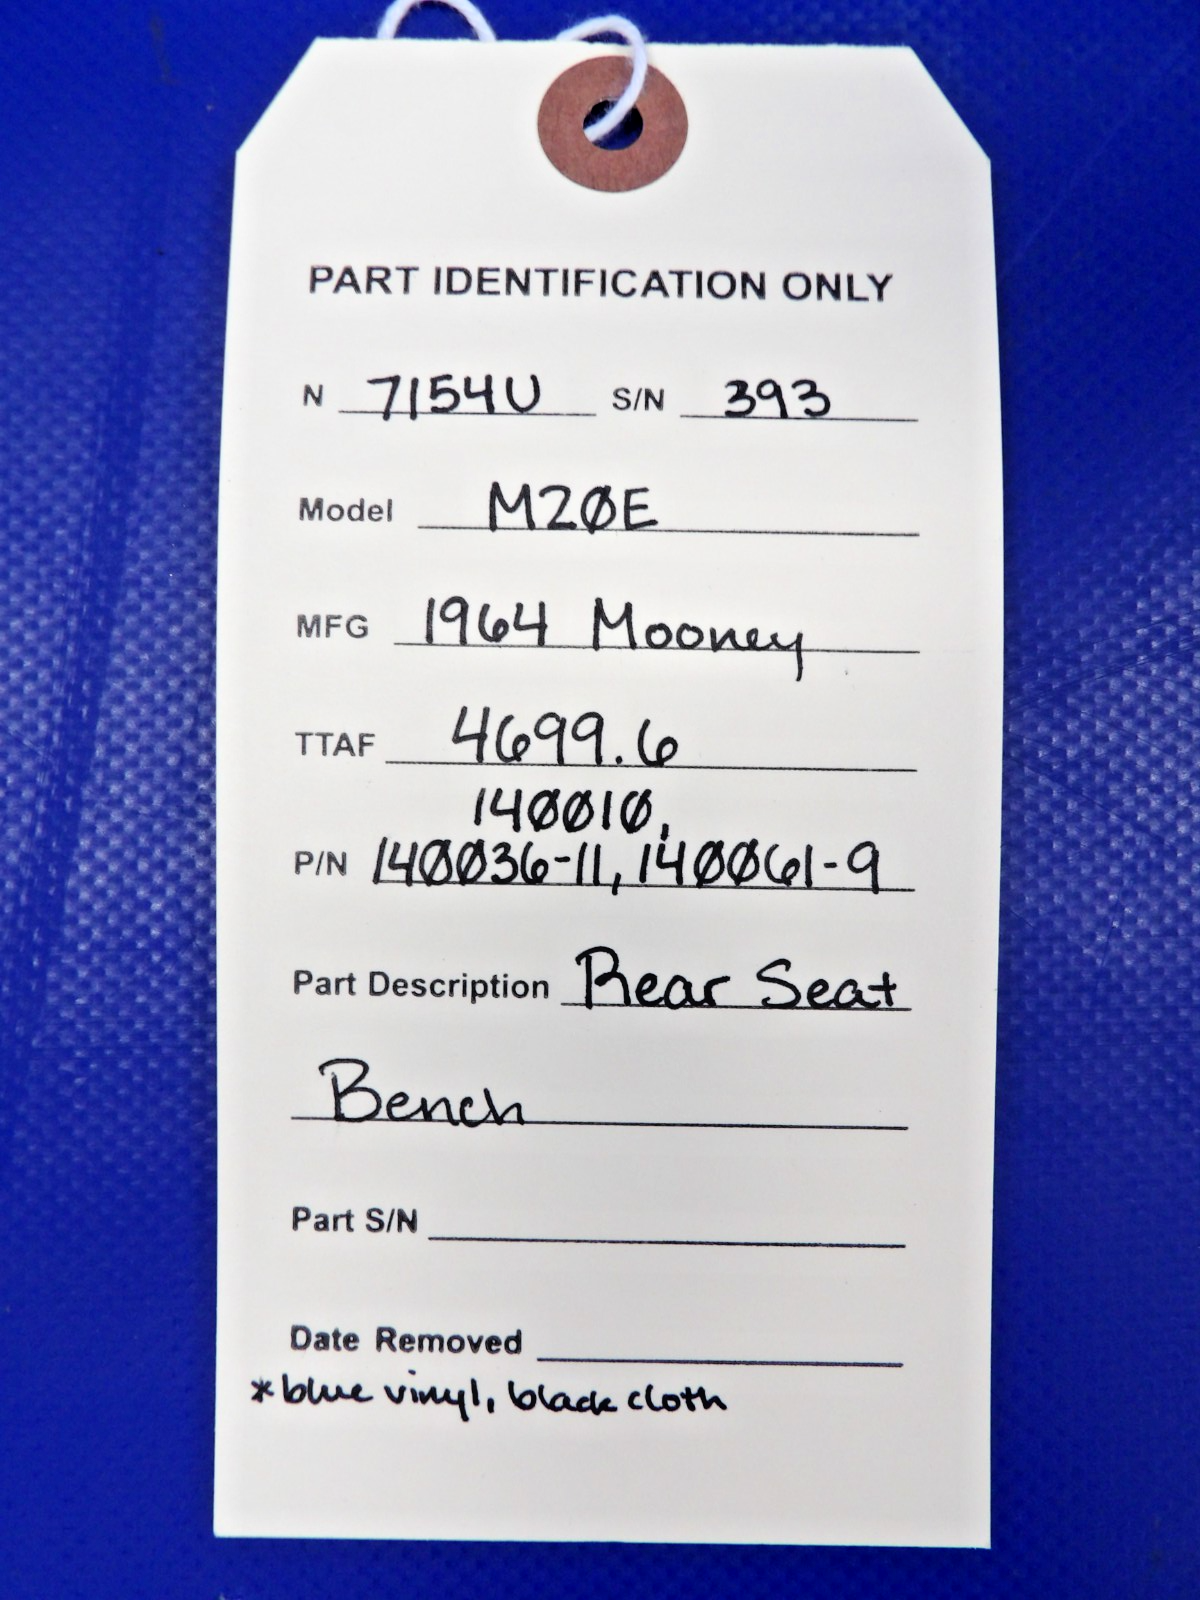 PART IDENTIFICATION ONLY
N 7154U S/N 393
Model M20E
MFG 1964 Mooney
TTAF 4699.6
140010,
P/N 140036-11, 140061-9
Part Description Rear Seat
Bench
Part S/N
Date Removed
*blue vinyl, black cloth